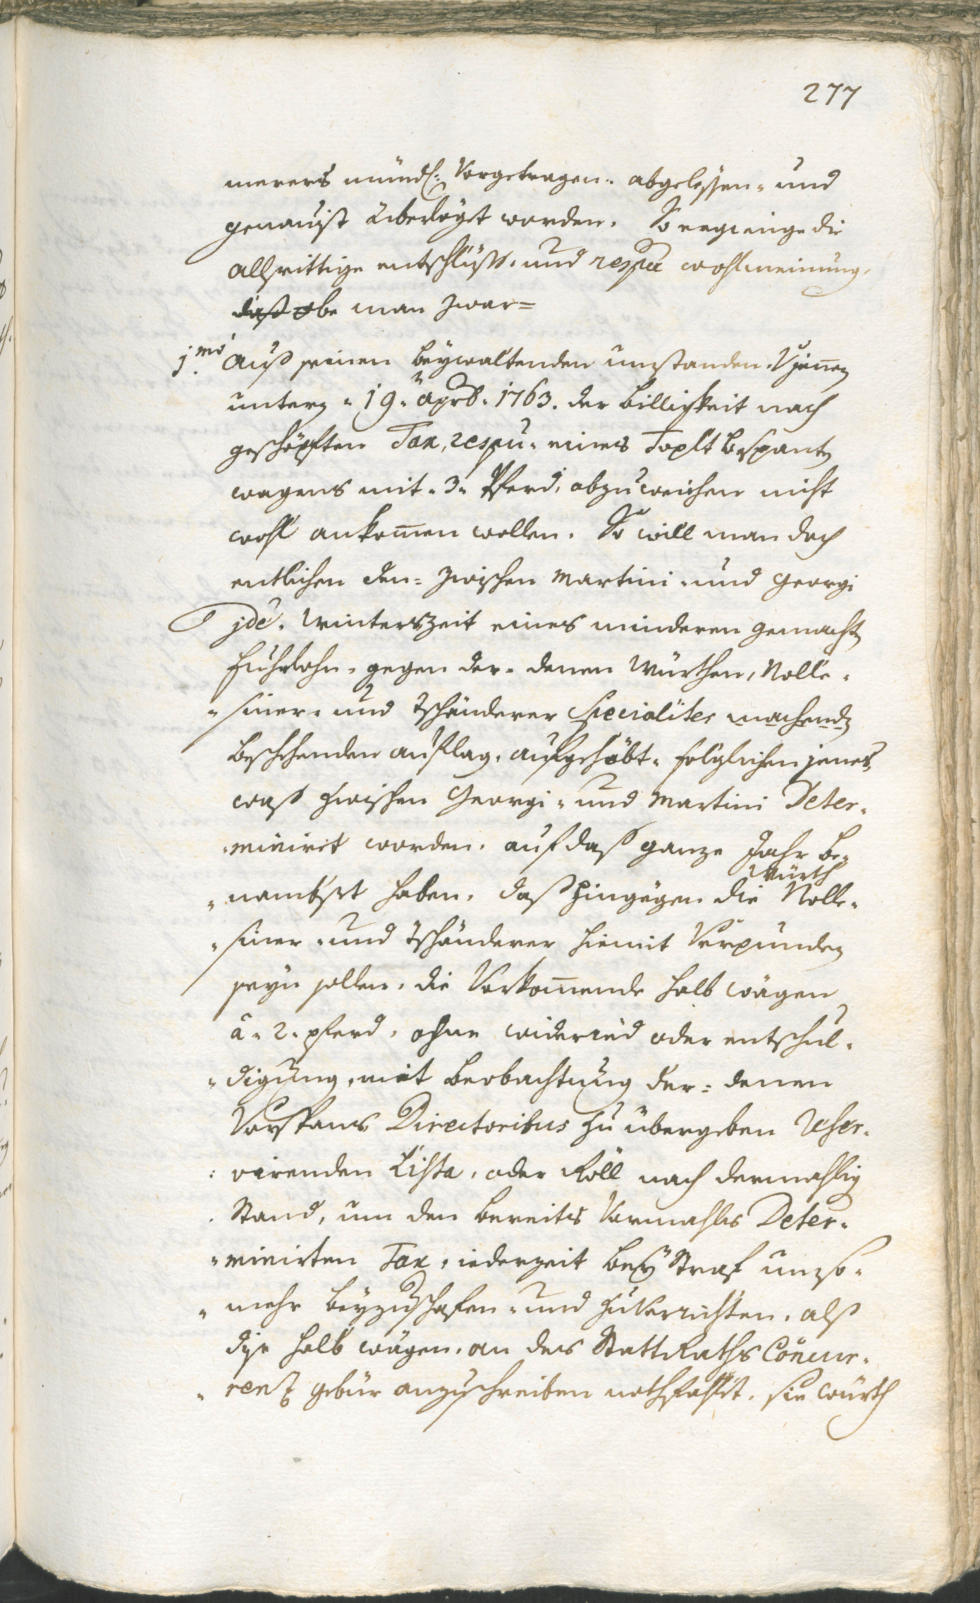 277
merers mündl: Vorgetragen. abgelesen. und
genauist überlögt worden. So ergienge die
allseittige entschlüss. und respve wohlmeinung.
daß obe man zwar=
jmo Auß seinen beywaltenden umstanden. Vjenn
unterm 19. Aprb. 1763. der billigkeit nach
geschöpften Tax, respu. eines Toplt bespantn
wagens mit. 3. Pferd, abzuweichen nicht
wohl ankomen wollen. So will man doch
entlichen den= zwischen Martini. und Georgi
jde. Winterszeit eines minderen gemachtn
fuhrlohn. gegen der. denen Würthen, Rolle.
siner. und Tschänderer Specialiter machendn
beschehenden auflag. aufgehöbt. folglichen jenes,
waß zwischen Georgi. und Martini Deter.
minirt worden. auf daß ganze Jahr be.
Würth
nambset haben. daß hingegen die Rolle.
siner. und Tschänderer hiemit Verpunden
seyn sollen. die Vorkomende halb wägen
â. 2. pferd. ohne widerred oder entschul.
digung, mit beobachtung der= denen
Vorspans Directoribus zu übergeben reser.
virenden Lista, oder Röll nach dermahlig
Stand, um den bereits Vormahls Deter.
minirten Tax. iederzeit bey Straf umso.
mehr beyzuschafen. und zu Verrichten. alß
dise halb wägen. an des StattRaths Concur.
renz gebür anzuschreiben nothfahlt. sie würth